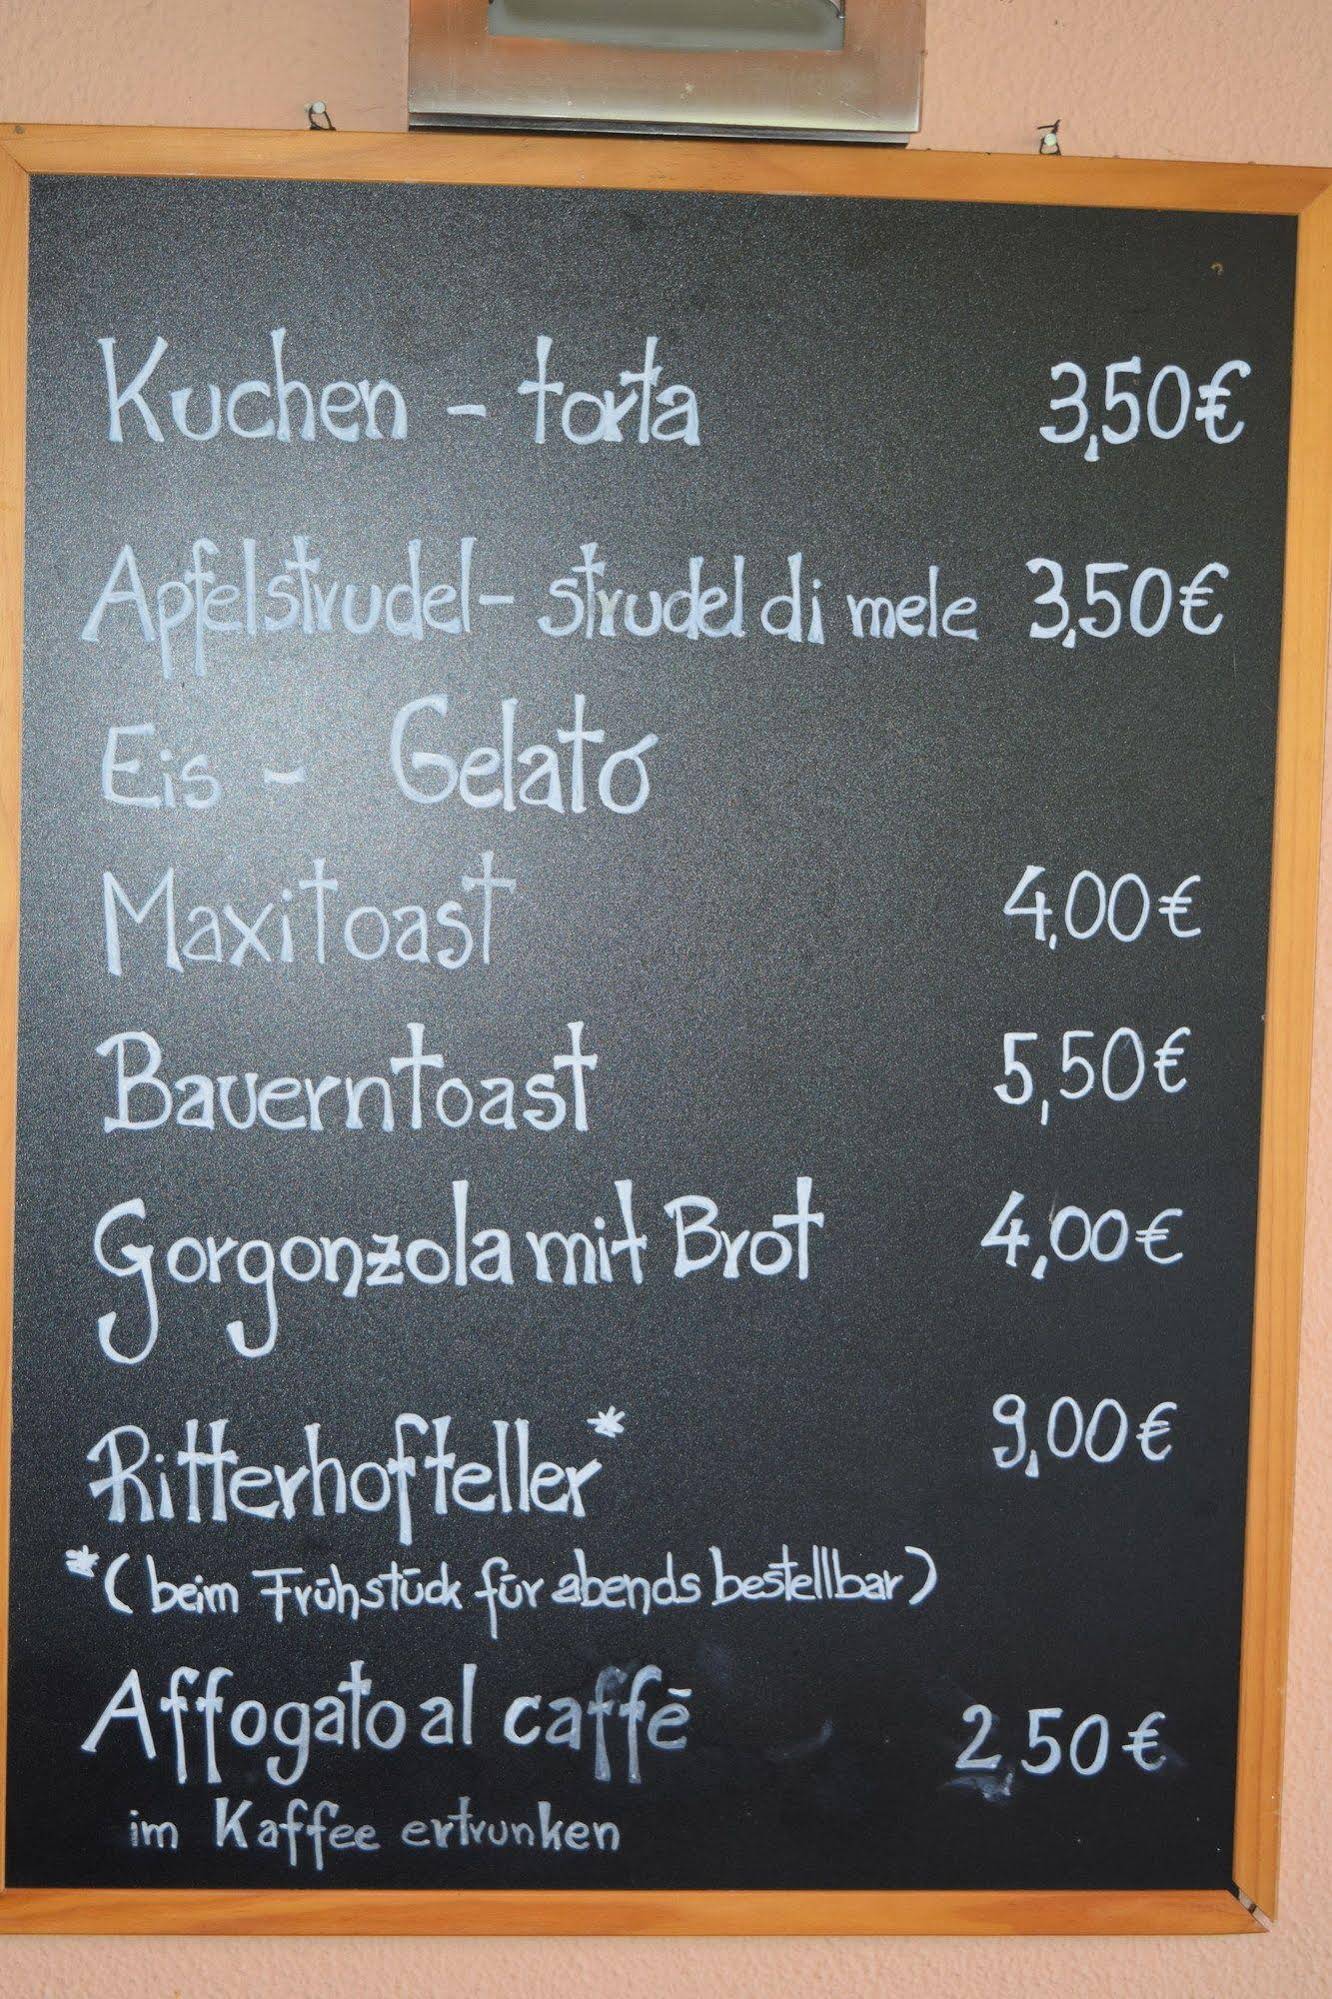 Kuchen - torta 3,50€
Apfelstrudel - strudel di mele 3,50€
Eis - Gelato
Maxitoast 4,00€
Bauerntoast 5,50€
Gorgonzola mit Brot 4,00€
Ritterhofteller* 9,00€
*(beim Frühstück für abends bestellbar)
Affogato al caffē 2,50€
im Kaffee ertrunken